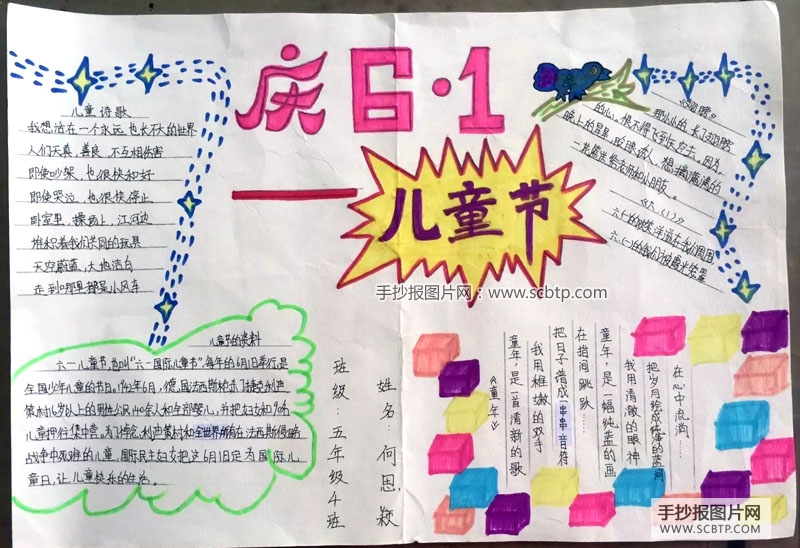 庆6·1
儿童节
儿童诗歌
我想活在一个永远也长不大的世界
人们天真,善良,不互相伤害
即使吵架,也很快和好
即使哭泣,也很快停止
卧室里,操场上,江河边
堆积着我们共同的玩具
天空蔚蓝,大地洁白
走到哪里都是小风车
《翅膀》
那小小的,长了翅膀
的心,恨不得飞到天空去。因为,
晚上的星星,眨眼诱人,想摘满满的
一花篮送给老师和小朋友。
《六(1)》
六一的欢笑洋溢在我们周围
六一的我们被霞光笼罩
手抄报图片网:www.scbtp.com
儿童节的资料
六一儿童节,也叫“六一国际儿童节”,每年的6月1日举行,是
全国少年儿童的节日。1942年6月,德国法西斯枪杀了捷克利迪
策村16岁以上的男性公民140余人和全部婴儿,并把妇女和90名
儿童押往集中营。为了悼念利迪策村和全世界所有在法西斯侵略
战争中死难的儿童,国际民主妇女把这6月1日定为国际儿
童日,让儿童快乐的生活。
班级 五年级4班
姓名:何恩颖
《童年》
童年,是一首清新的歌
我用稚嫩的双手
把日子谱成串串音符
在指间跳跃……
童年,是一幅纯蓝的画
我用清澈的眼神
把岁月绘成纯净的蓝
在心中流淌……
手抄报图片网
WWW.SCBTP.COM